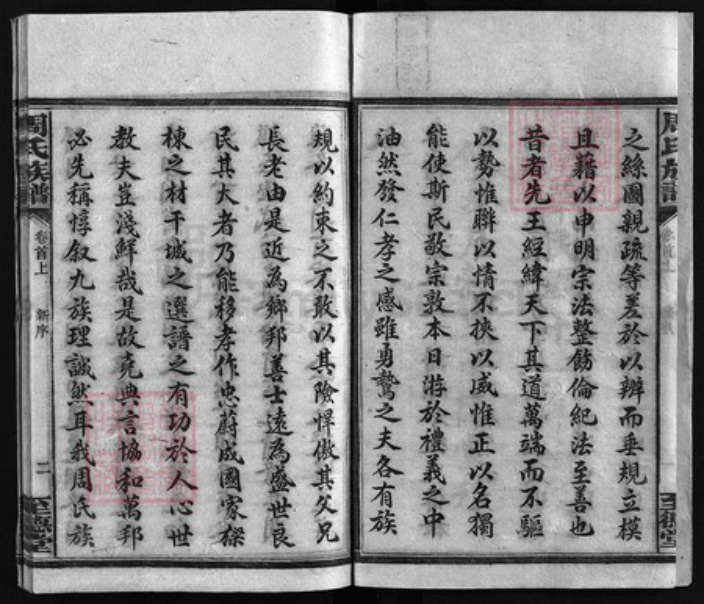 之絲圖親疏等差於以辨而垂規立模
且藉以申明宗法整飭倫紀法至善也
昔者先王經緯天下其道萬端而不驅
以勢惟聯以情不挾以威惟正以名獨
能使斯民敬宗敦本日游於禮義之中
油然發仁孝之感雖勇鷙之夫各有族
規以約束之不敢以其險悍傲其父兄
長老由是近為鄉邦善士遠為盛世良
民其大者乃能移孝作忠蔚成國家樑
棟之材干城之選譜之有功於人心世
教夫豈淺鮮哉是故堯典言協和萬邦
必先稱惇叙九族理誠然耳我周氏族
周氏族譜
卷首上
新序
二